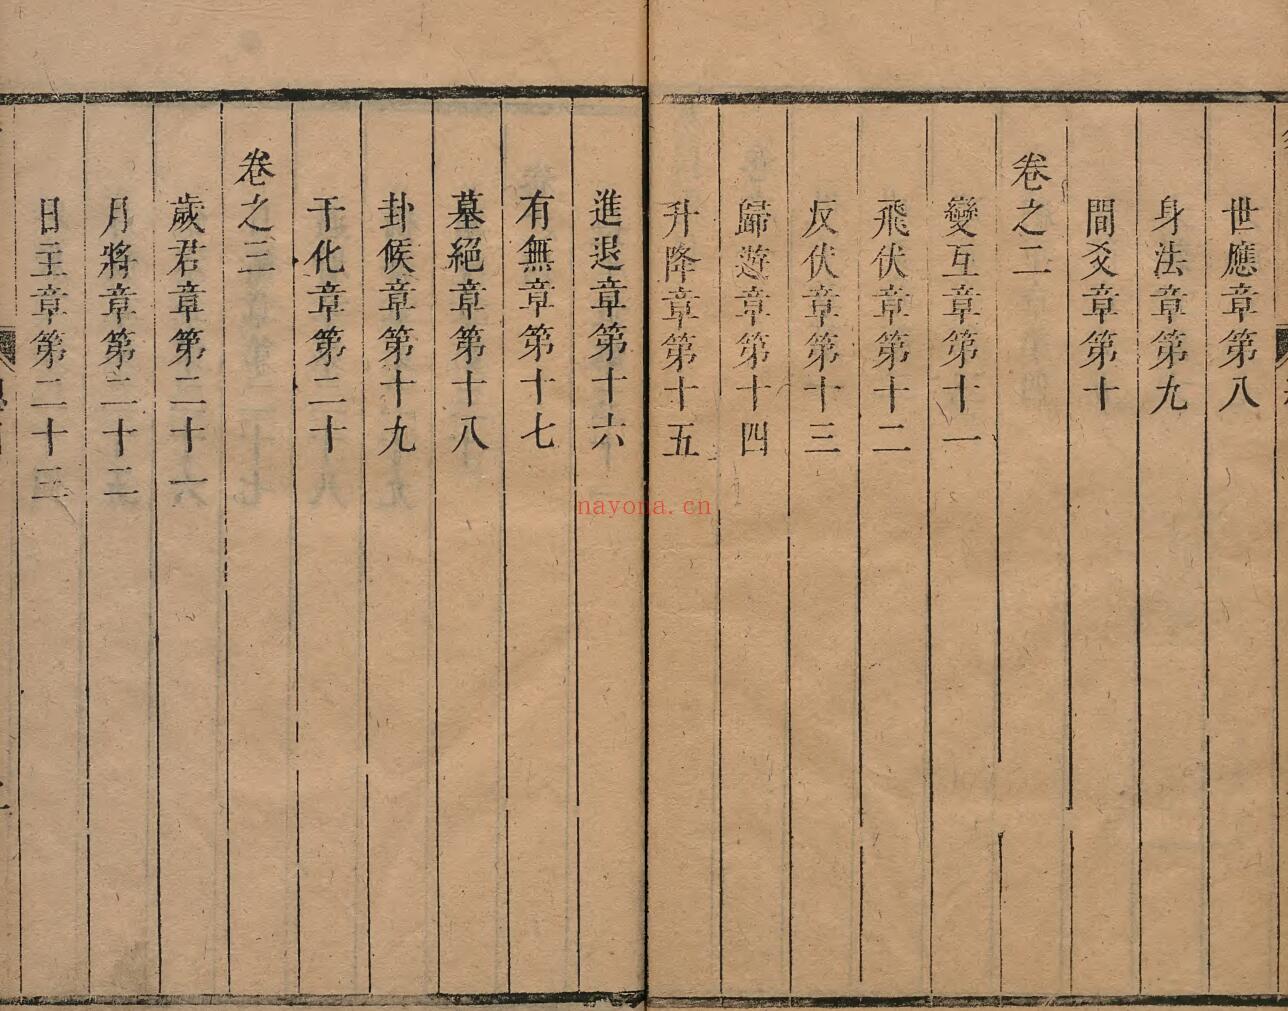 世應章第八
身法章第九
間爻章第十
卷之二
變互章第十一
飛伏章第十二
反伏章第十三
歸遊章第十四
升降章第十五
進退章第十六
有無章第十七
墓絕章第十八
卦候章第十九
干化章第二十
卷之三
歲君章第二十一
月將章第二十二
日主章第二十三
nayona.cn